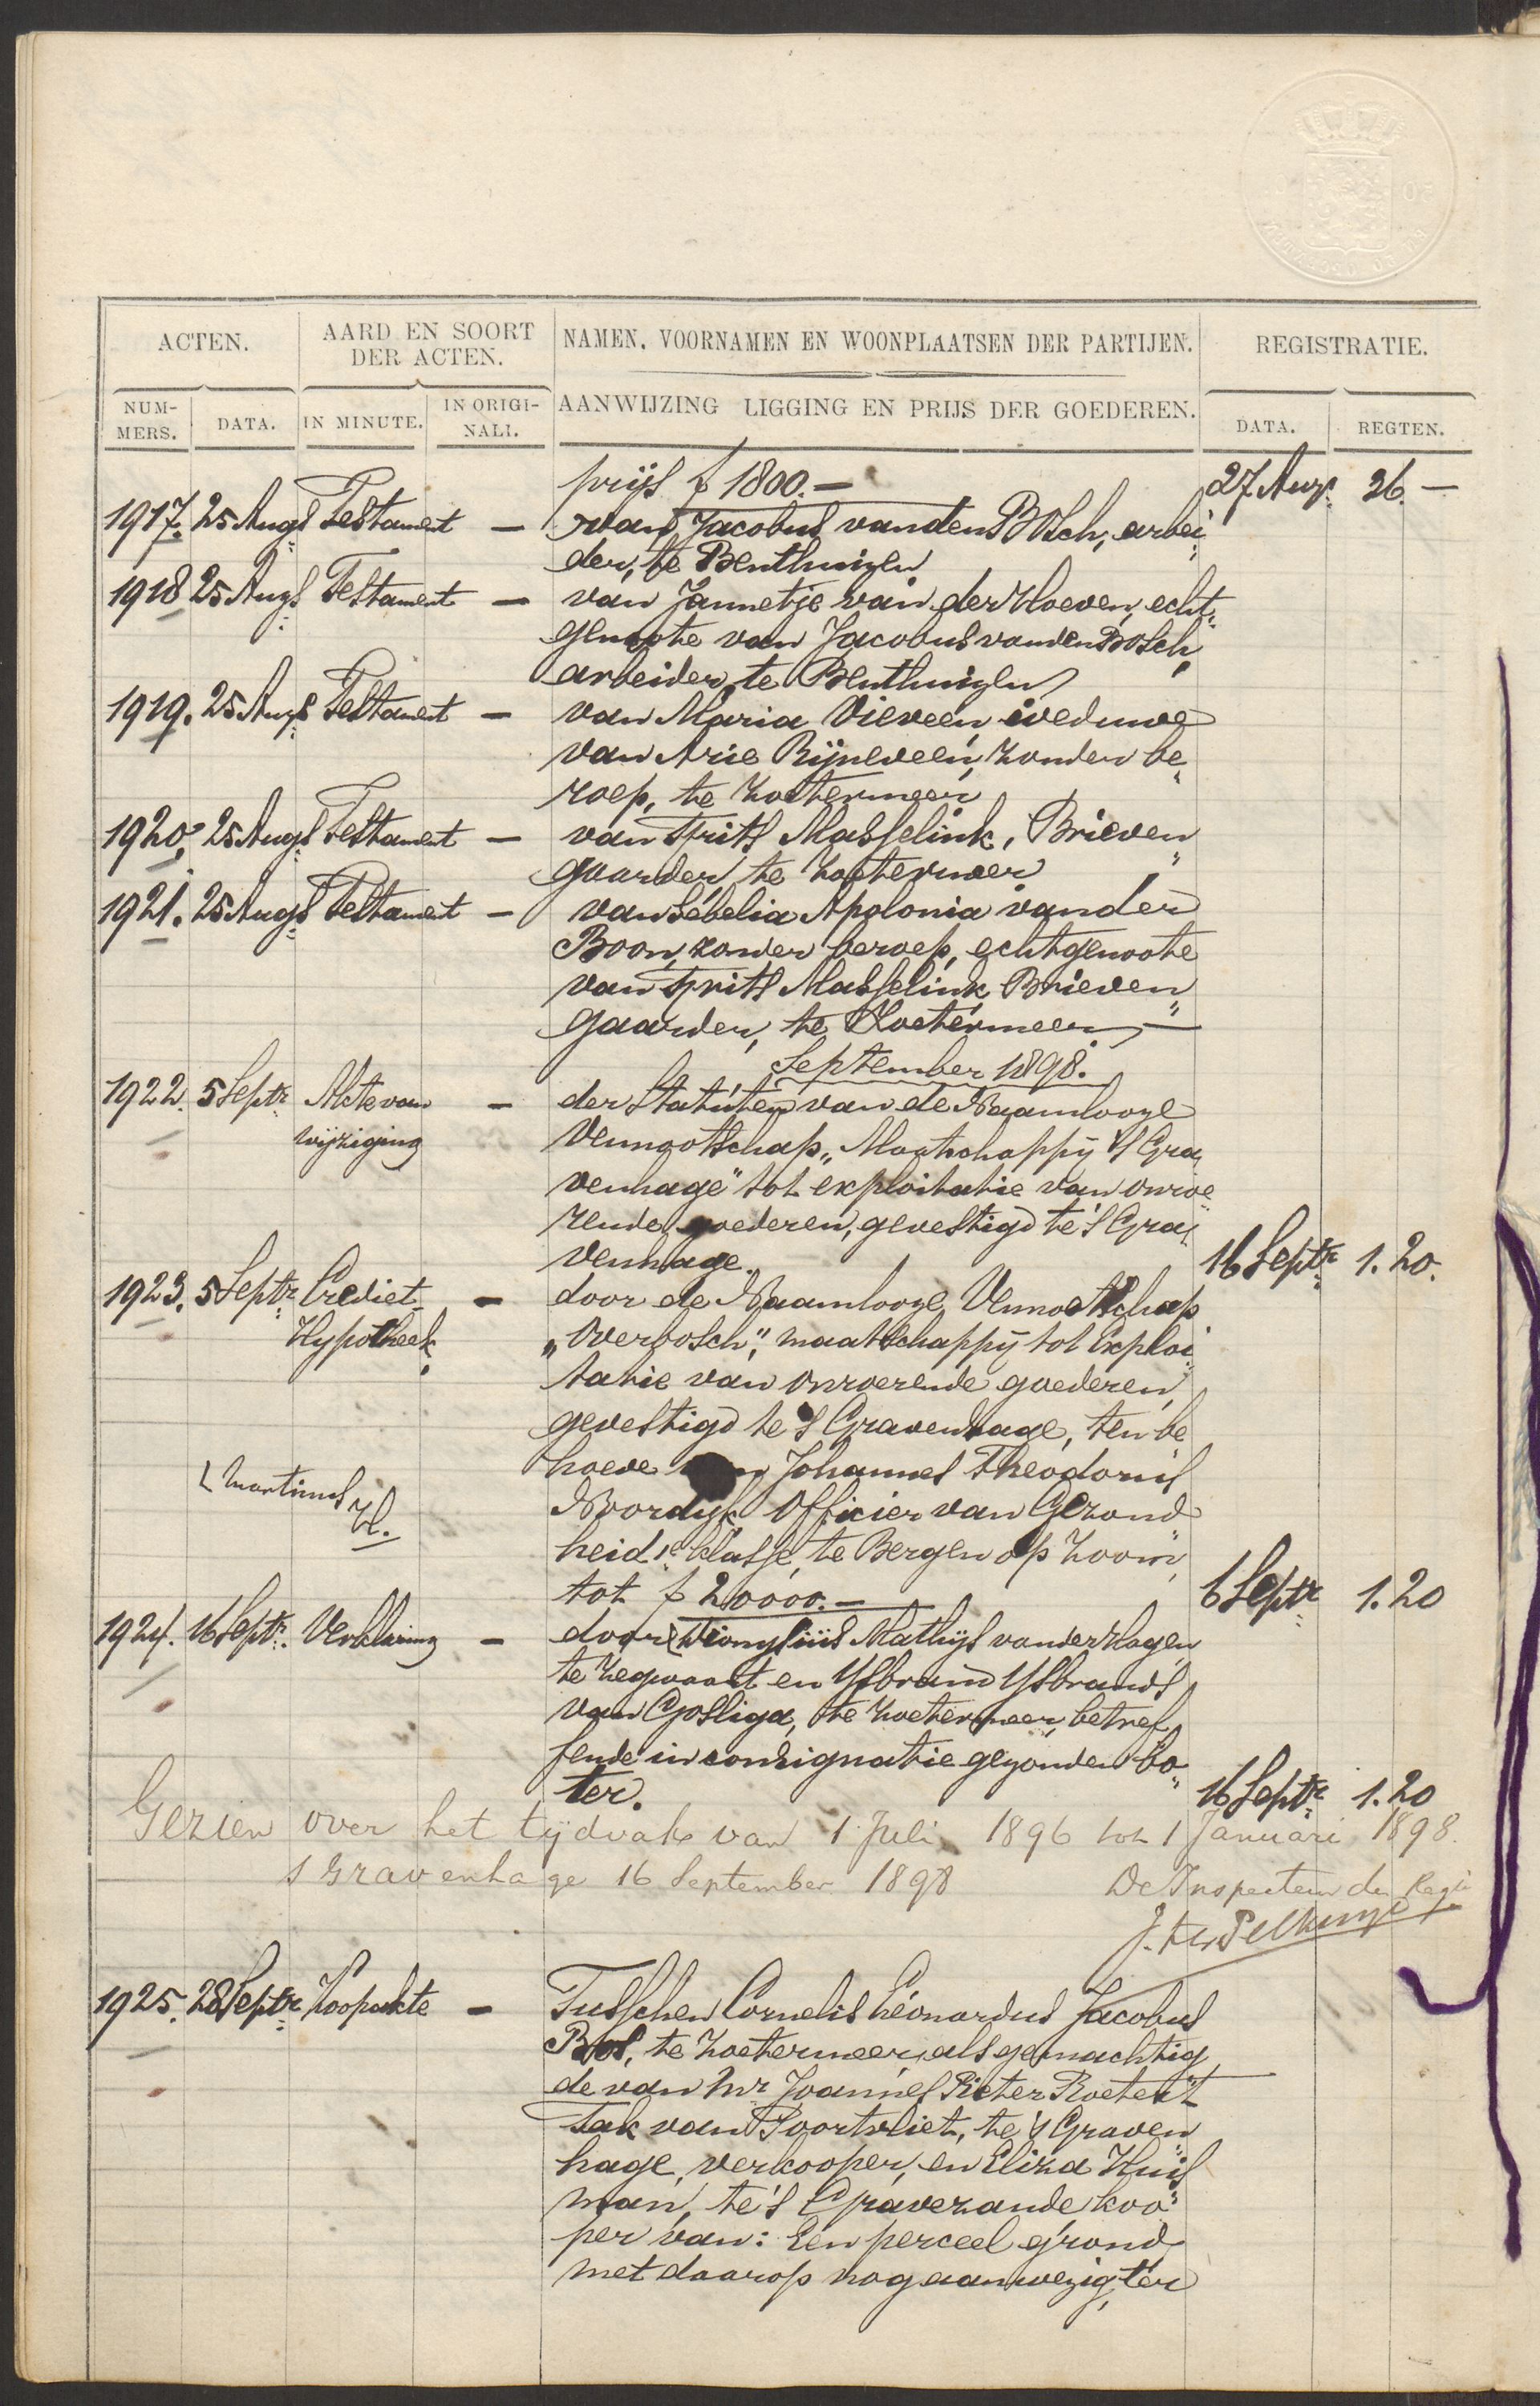 ACTEN.
AARD EN SOORT
DER ACTEN.
NAMEN, VOORNAMEN EN WOONPLAATSEN DER PARTIJEN.
REGISTRATIE.
NUM-
MERS.
DATA.
IN MINUTE.
IN ORIGI-
NALI.
AANWIJZING LIGGING EN PRIJS DER GOEDEREN.
DATA.
REGTEN.
prijs f 1800.— 27 Augs. 26.—
1917. 25 Augs Testament — van Jacobus van den Bosch, arbei
der, te Benthuizen
1918 25 Augs Testament — van Jannetje van der Hoeven, echt
genoote van Jacobus van den Bosch,
arbeider, te Benthuizen
1919. 25 Augs Testament — van Maria Vieveen, weduwe
van Arie Rijneveen, zonder be
roep, te Zoetermeer
1920. 25 Augs Testament — van Frits Masselink, Brieven
gaarder, te Zoetermeer
1921. 25 Augs Testament — van Sebelia Apolonia van der
Boon, zonder beroep, echtgenoote
van Frits Masselink, Brieven
gaarder, te Zoetermeer —
September 1898.
1922. 5 Septr Akte van — der Statuten van de Naamlooze
wijziging Vennootschap „Maatschappij 's Gra
venhage" tot exploitatie van onroe
rende goederen, gevestigd te 's Gra
venhage. 16 Septr. 1.20.
1923. 5 Septr. Crediet- — door de Naamlooze Vennootschap
Hypotheek. „Overbosch", maatschappij tot Exploi
tatie van onroerende goederen,
gevestigd te 's Gravenhage, ten be
hoeve van Johannes Theodorus
Noordijk, Officier van Gezond
heid 1e klasse, te Bergen op Zoom,
tot f 20000.— 6 Septr. 1.20
Martinus
H.
1924. 16 Septr. Verklaring — door Dionysius Mathijs van der Hagen,
te Zegwaart en Ysbrand Ysbrands
van Gosliga, te Zoetermeer, betref
fende in consignatie gezonden bo
ter. 16 Septr. 1.20
Gezien over het tijdvak van 1 Juli 1896 tot 1 Januari 1898.
s Gravenhage 16 September 1898 De Inspecteur der Regie
1925. 28 Septr. Koopakte — Tusschen Cornelis Leonardus Jacobus
Bos, te Zoetermeer, als gemachtig
de van Mr Joannes Pieter Roetert
Tak van Poortvliet, te 's Graven
hage, verkooper, en Eliza Huis
man, te 's Gravezande koo
per van: Een perceel grond
met daarop nog aanwezig, ter